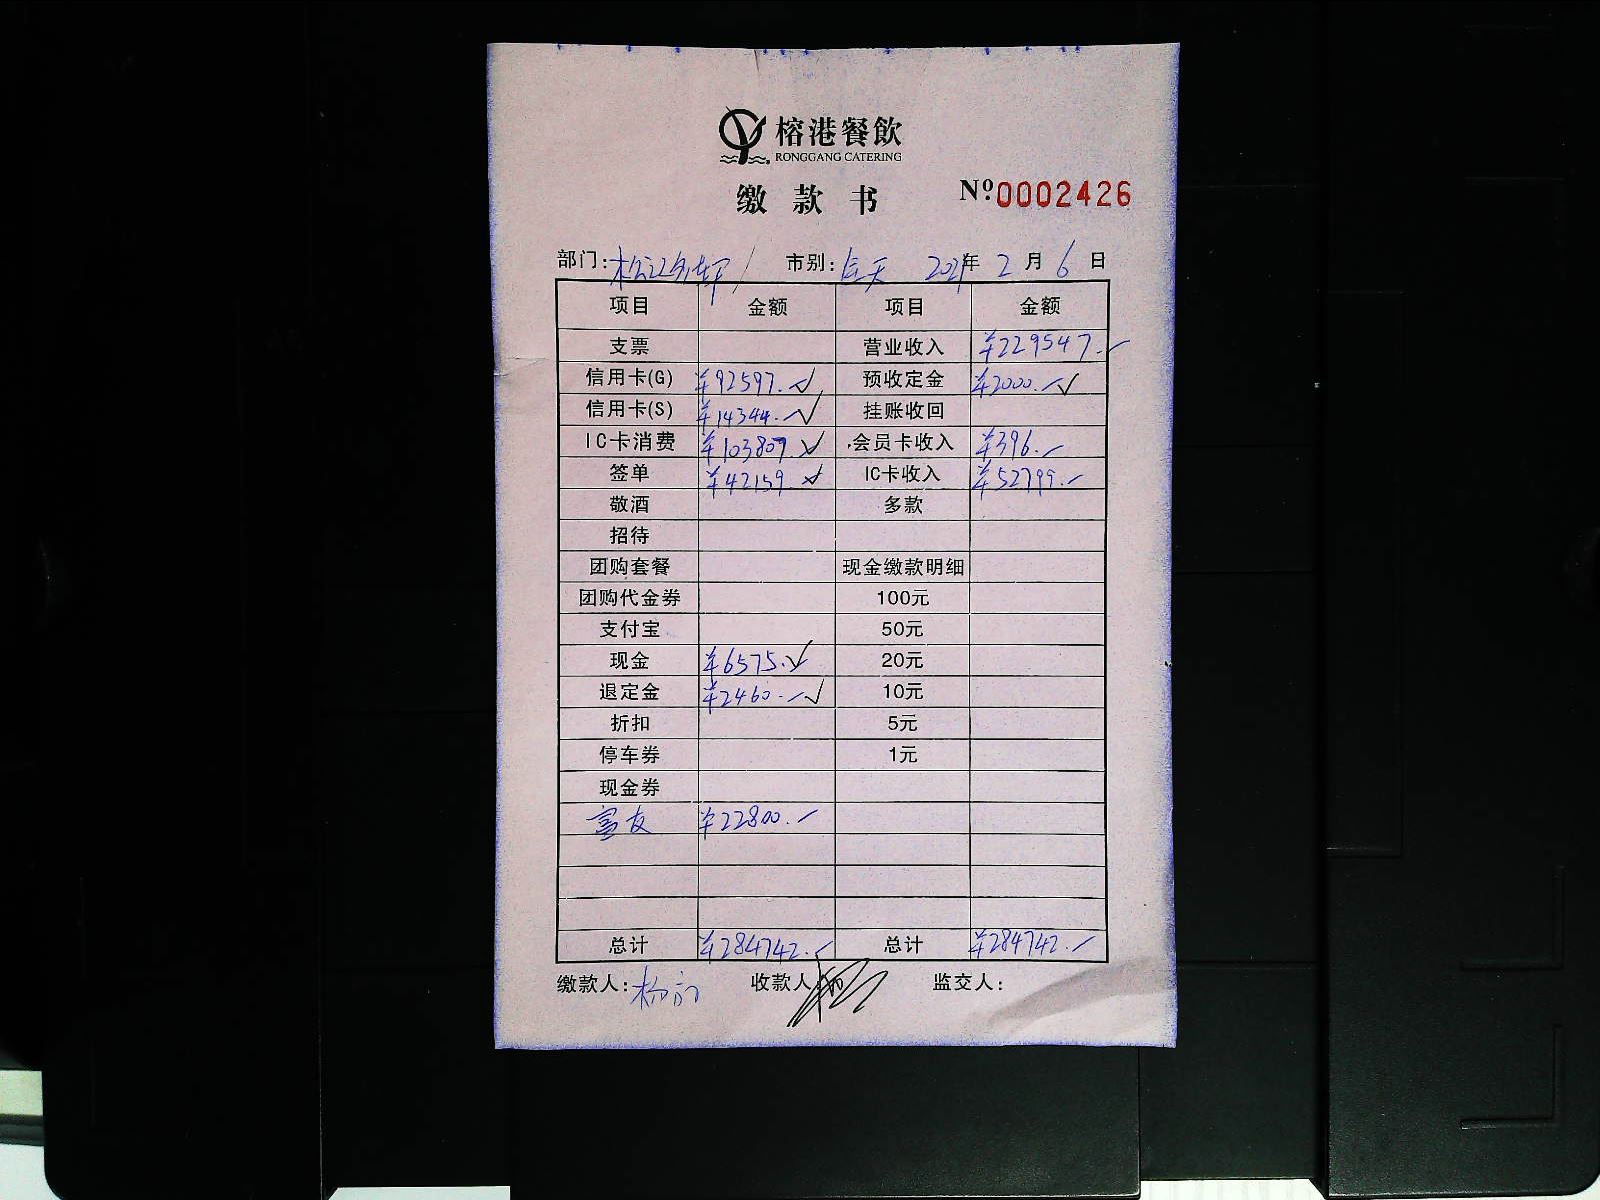 榕港餐飲
RONGGANG CATERING
缴款书 Nº.0002426
部门: 市别:全天 2021年 2月 6日
项目 金额 项目 金额
支票 营业收入 ¥229547.
信用卡(G) ¥92597. 预收定金 ¥2000.
信用卡(S) ¥14344. 挂账收回
IC卡消费 ¥103807. 会员卡收入 ¥396.
签单 ¥42159. IC卡收入 ¥52799.
敬酒 多款
招待
团购套餐 现金缴款明细
团购代金券 100元
支付宝 50元
现金 ¥6575. 20元
退定金 ¥2460. 10元
折扣 5元
停车券 1元
现金券
富友 ¥22800.
总计 ¥284742. 总计 ¥284742.
缴款人: 收款人 监交人: